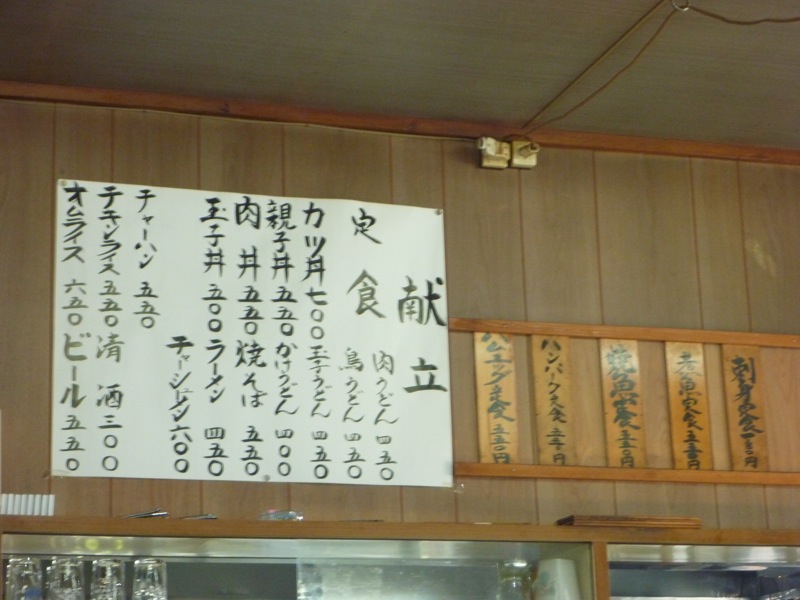 献立
定食
肉うどん 四五〇
鳥うどん 四五〇
カツ丼 七〇〇
玉子うどん 四五〇
親子丼 五五〇
かけうどん 四〇〇
肉丼 五五〇
焼そば 五五〇
玉子丼 五〇〇
ラーメン 四五〇
チャーシューメン 六〇〇
チャーハン 五五〇
チキンライス 五五〇
清酒 三〇〇
オムライス 六五〇
ビール 五五〇
刺身定食
煮魚定食 五五〇円
焼魚定食 五五〇円
ハンバーグ定食 五五〇円
ハムエッグ定食 五五〇円